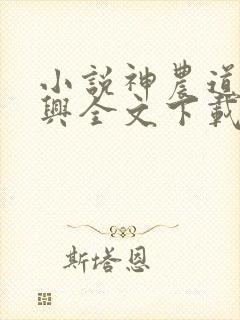 小說神農道
興全文下載
斯塔恩